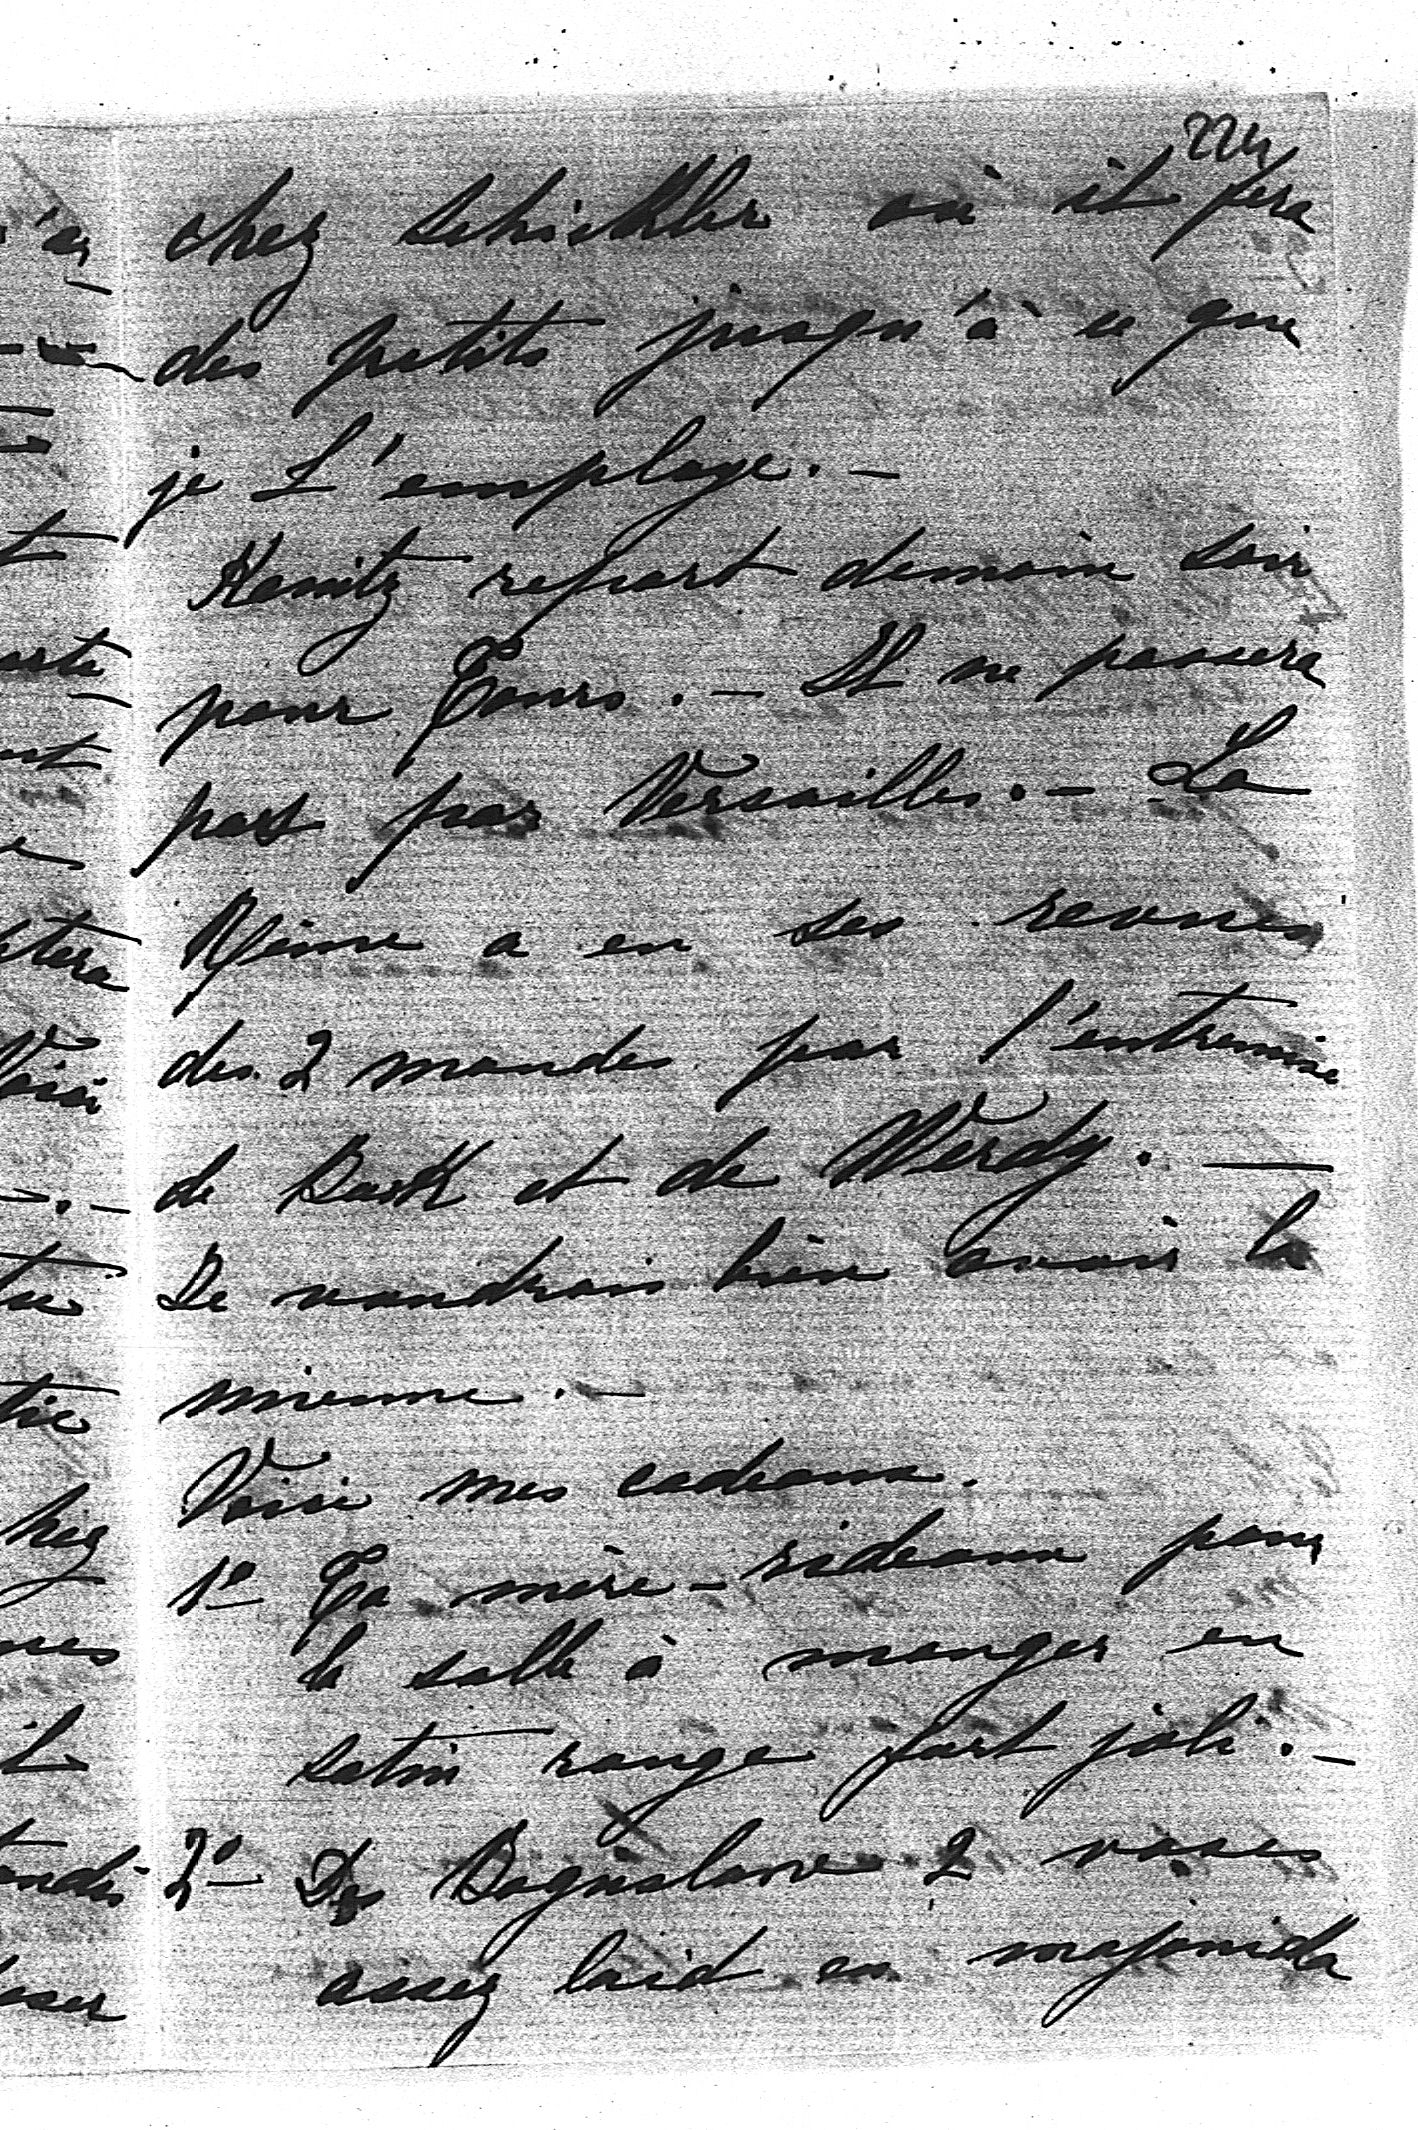 224
chez Schickler où il fera
des petits jusqu'à ce que
je L'employe. —
Kanitz repart demain soir
pour Tours. — Il ne passera
pas par Versailles. — La
Reine a eu ses revues
des 2 mondes par l'entremise
de Bark et de Werdy. —
Je voudrais bien avoir la
mienne. —
Voici mes cadeaux.
1º Ta mère - rideaux pour
la salle à manger en
satin rouge fort joli. —
2º De Boguslawe 2 vases
assez laid en majonicka